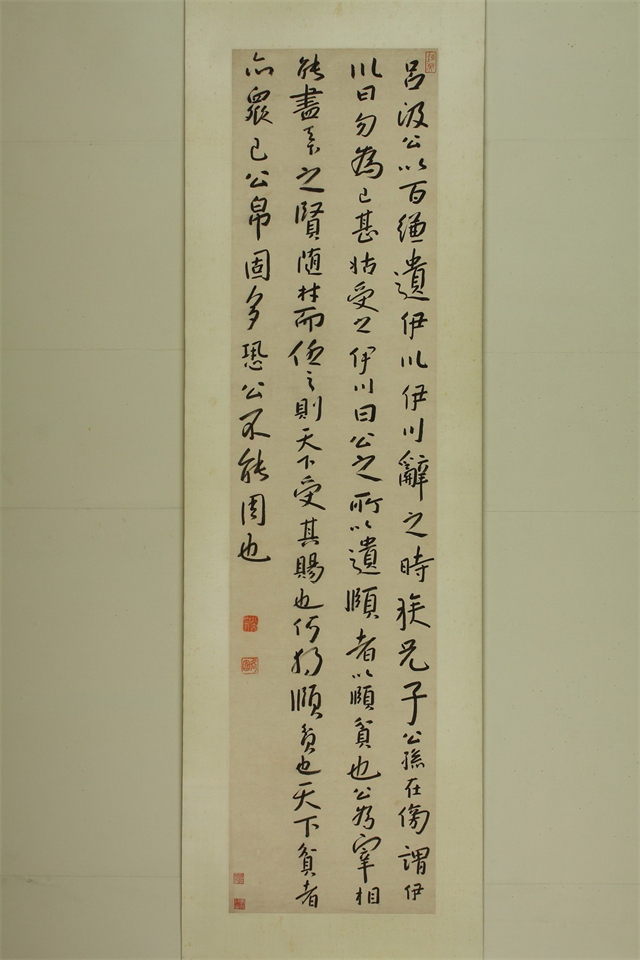 呂汲公以百縑遺伊川伊川辭之時族兄子公孫在傍謂伊
川曰勿為已甚姑受之伊川曰公之所以遺頤者以頤貧也公為宰相
能盡天下之賢随材而任之則天下受其賜也何獨頤貧也天下貧者
亦眾已公帛固多恐公不能周也